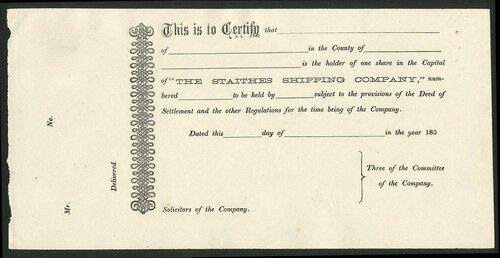 This is to Certify that
of in the County of
is the holder of one share in the Capital
of "THE STAITHES SHIPPING COMPANY," num-
bered to be held by subject to the provisions of the Deed of
Settlement and the other Regulations for the time being of the Company.
Dated this day of in the year 185
Three of the Committee
of the Company.
Solicitors of the Company.
No.
Mr.
Delivered